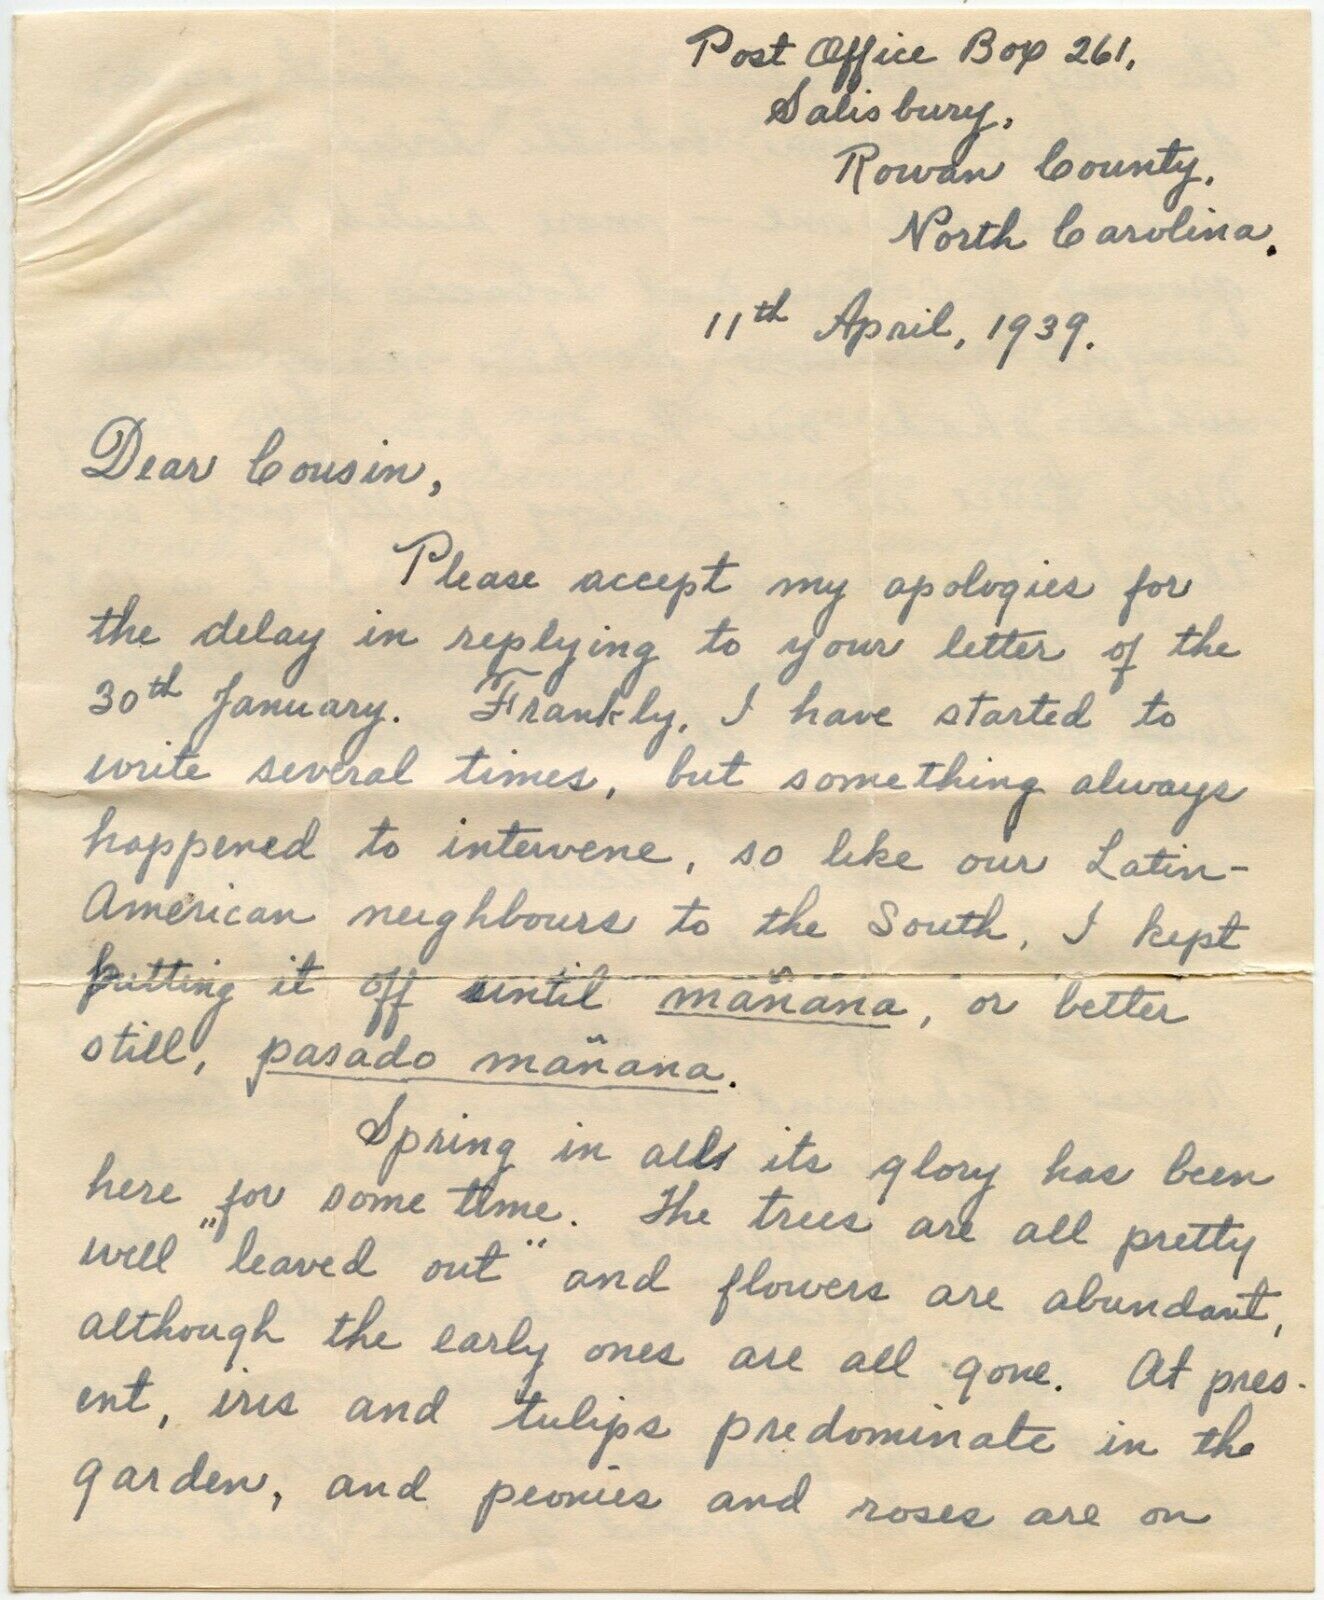 Post Office Box 261,
Salisbury,
Rowan County,
North Carolina.
11th April, 1939.
Dear Cousin,
Please accept my apologies for
the delay in replying to your letter of the
30th January. Frankly, I have started to
write several times, but something always
happened to intervene, so like our Latin-
American neighbours to the South, I kept
putting it off until mañana, or better
still, pasado mañana.
Spring in all its glory has been
here for some time. The trees are all pretty
well "leaved out" and flowers are abundant,
although the early ones are all gone. At pres-
ent, iris and tulips predominate in the
garden, and peonies and roses are on